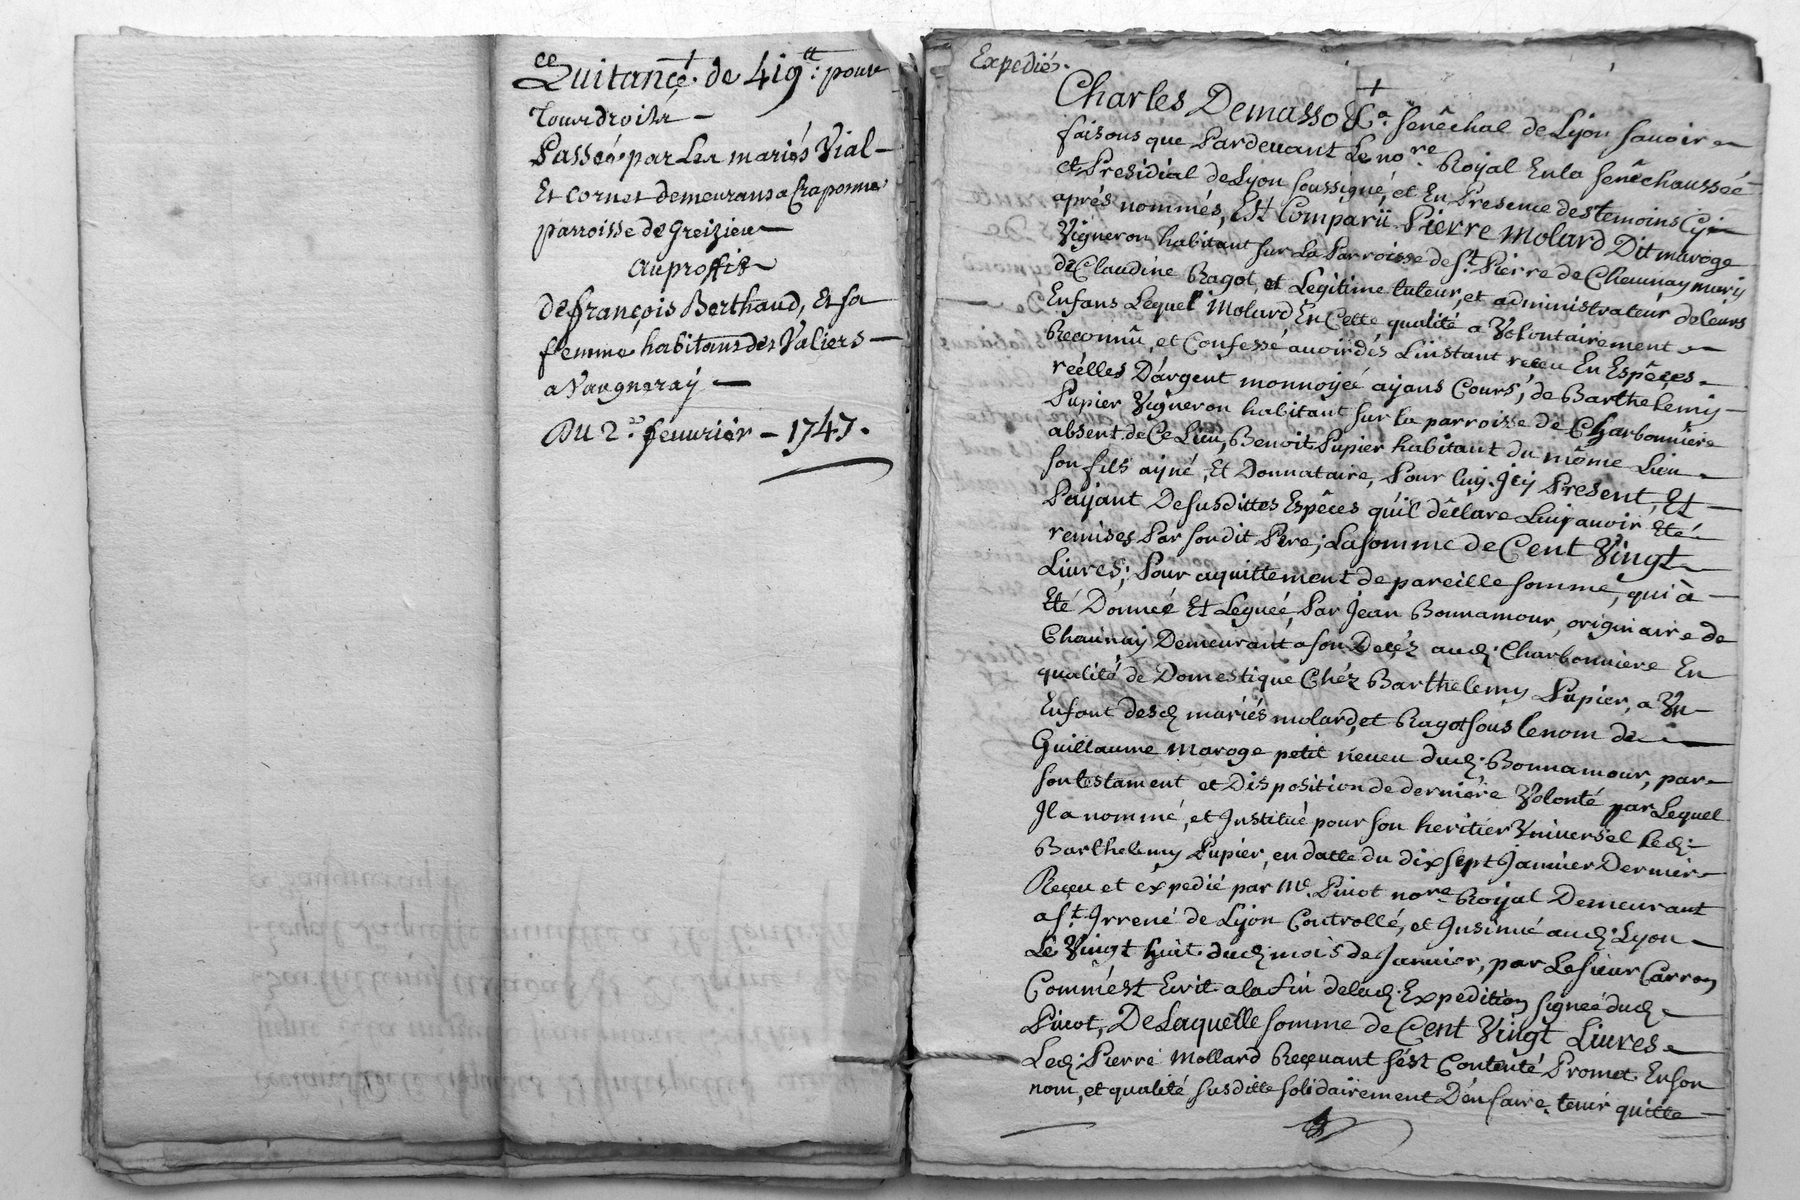 Quitance. de 419tt: pour
Tour droitz
Passée par Les mariés Vial
Et Cornet demeurans a Craponne
parroisse de Greizieu
Au proffit
de françois Berthaud, Et sa
femme habitans des Valiers
a Vaugneray
Du 2e. feuurier 1747.
Expedié.
Charles Demasso &a. senêchal de Lyon, sauoir
faisons que Pardeuant Le nore Royal En la senêchaussée
et Presidial de Lyon soussigné, et En Presence des temoins Cy
aprés nommés, Est Comparû Pierre Molard Dit maroge
Vigneron habitant sur La Parroisse de St. Pierre de Chaunay mary
de Claudine Ragot, et Legitime tuteur, et administrateur de leurs
Enfans Lequel Molard En Cette qualité a Volontairement
Reconnû, et Confessé auoir dés Linstant receu En Espêces
réelles D'argent monnoyéé ayans Cours, de Barthelemy
Pupier Vigneron habitant sur la parroisse de Charbonniere
absent de Ce Lieu, Benoit Pupier habitant du même Lieu
son fils ayné, Et Donnataire, Pour luy Jcy Present, Et
Payant De susdittes Espêces qu'il dêclare Luy auoir Eté
remises Par son dit Pere, La somme de Cent Vingt
Liures; Pour aquittement de pareille somme, qui à
Eté Donnéé Et Leguéé, Par Jean Bonnamour, originaire de
Chaunay Demeurant a son Decéz aud. Charbonniere En
qualité de Domestique Chéz Barthelemy Pupier, a Vn
Enfant desd. mariés molard, et Ragot sous le nom de
Guillaume Maroge petit neueu dud. Bonnamour, par
son testament et Disposition de derniére Volonté par Lequel
Jl a nommé, et Jnstitué pour son heritier Vniversel Led.
Barthelemy Pupier, en datte du dix sept Januier Dernier
Reçeu et éxpedié par Me. Pinot nore Royal Demeurant
a St. Jrrené de Lyon Controllé, et Jnsinué aud. Lyon
Le Vingt huit dud. mois de Januier, par Le sieur Carron
Comm'est Ecrit a la fin de lad. Expedition signéé dud.
Pinot, De Laquelle somme de Cent Vingt Liures
Led. Pierre Mollard Reçeuant s'est Contenté Promet En son
nom, et qualité susditte solidairement D'en faire tenir quitte